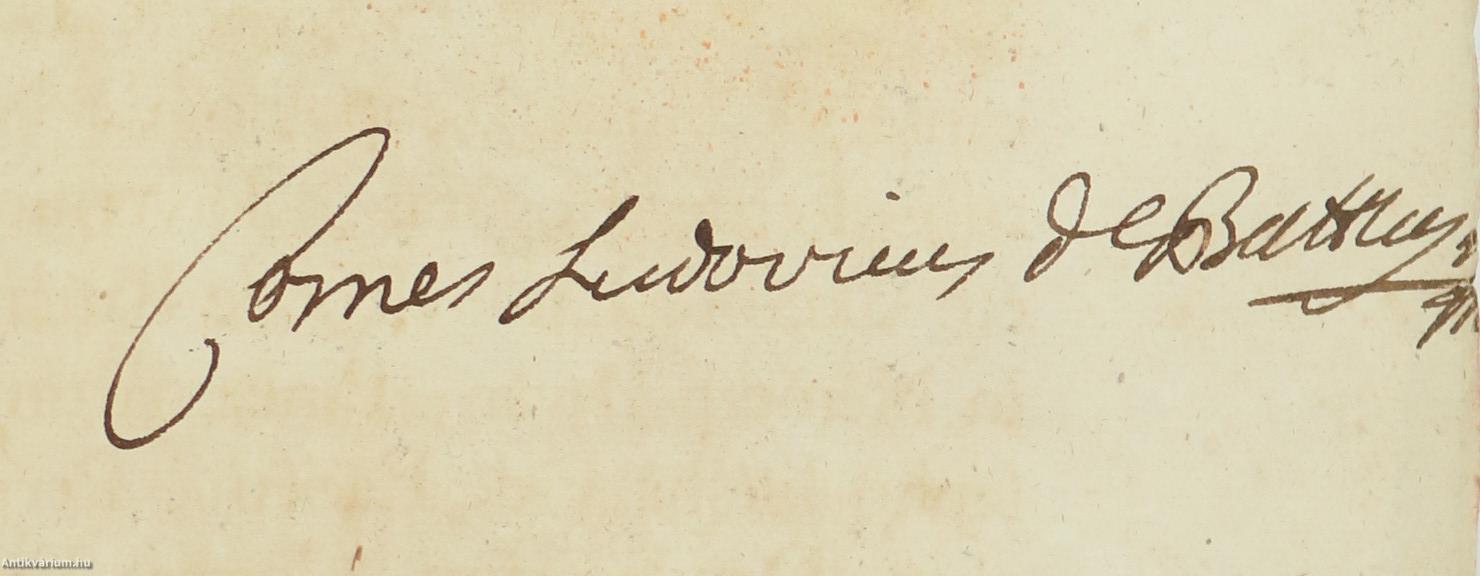 Comes Ludovicus de Batthya
Antikvárium.hu